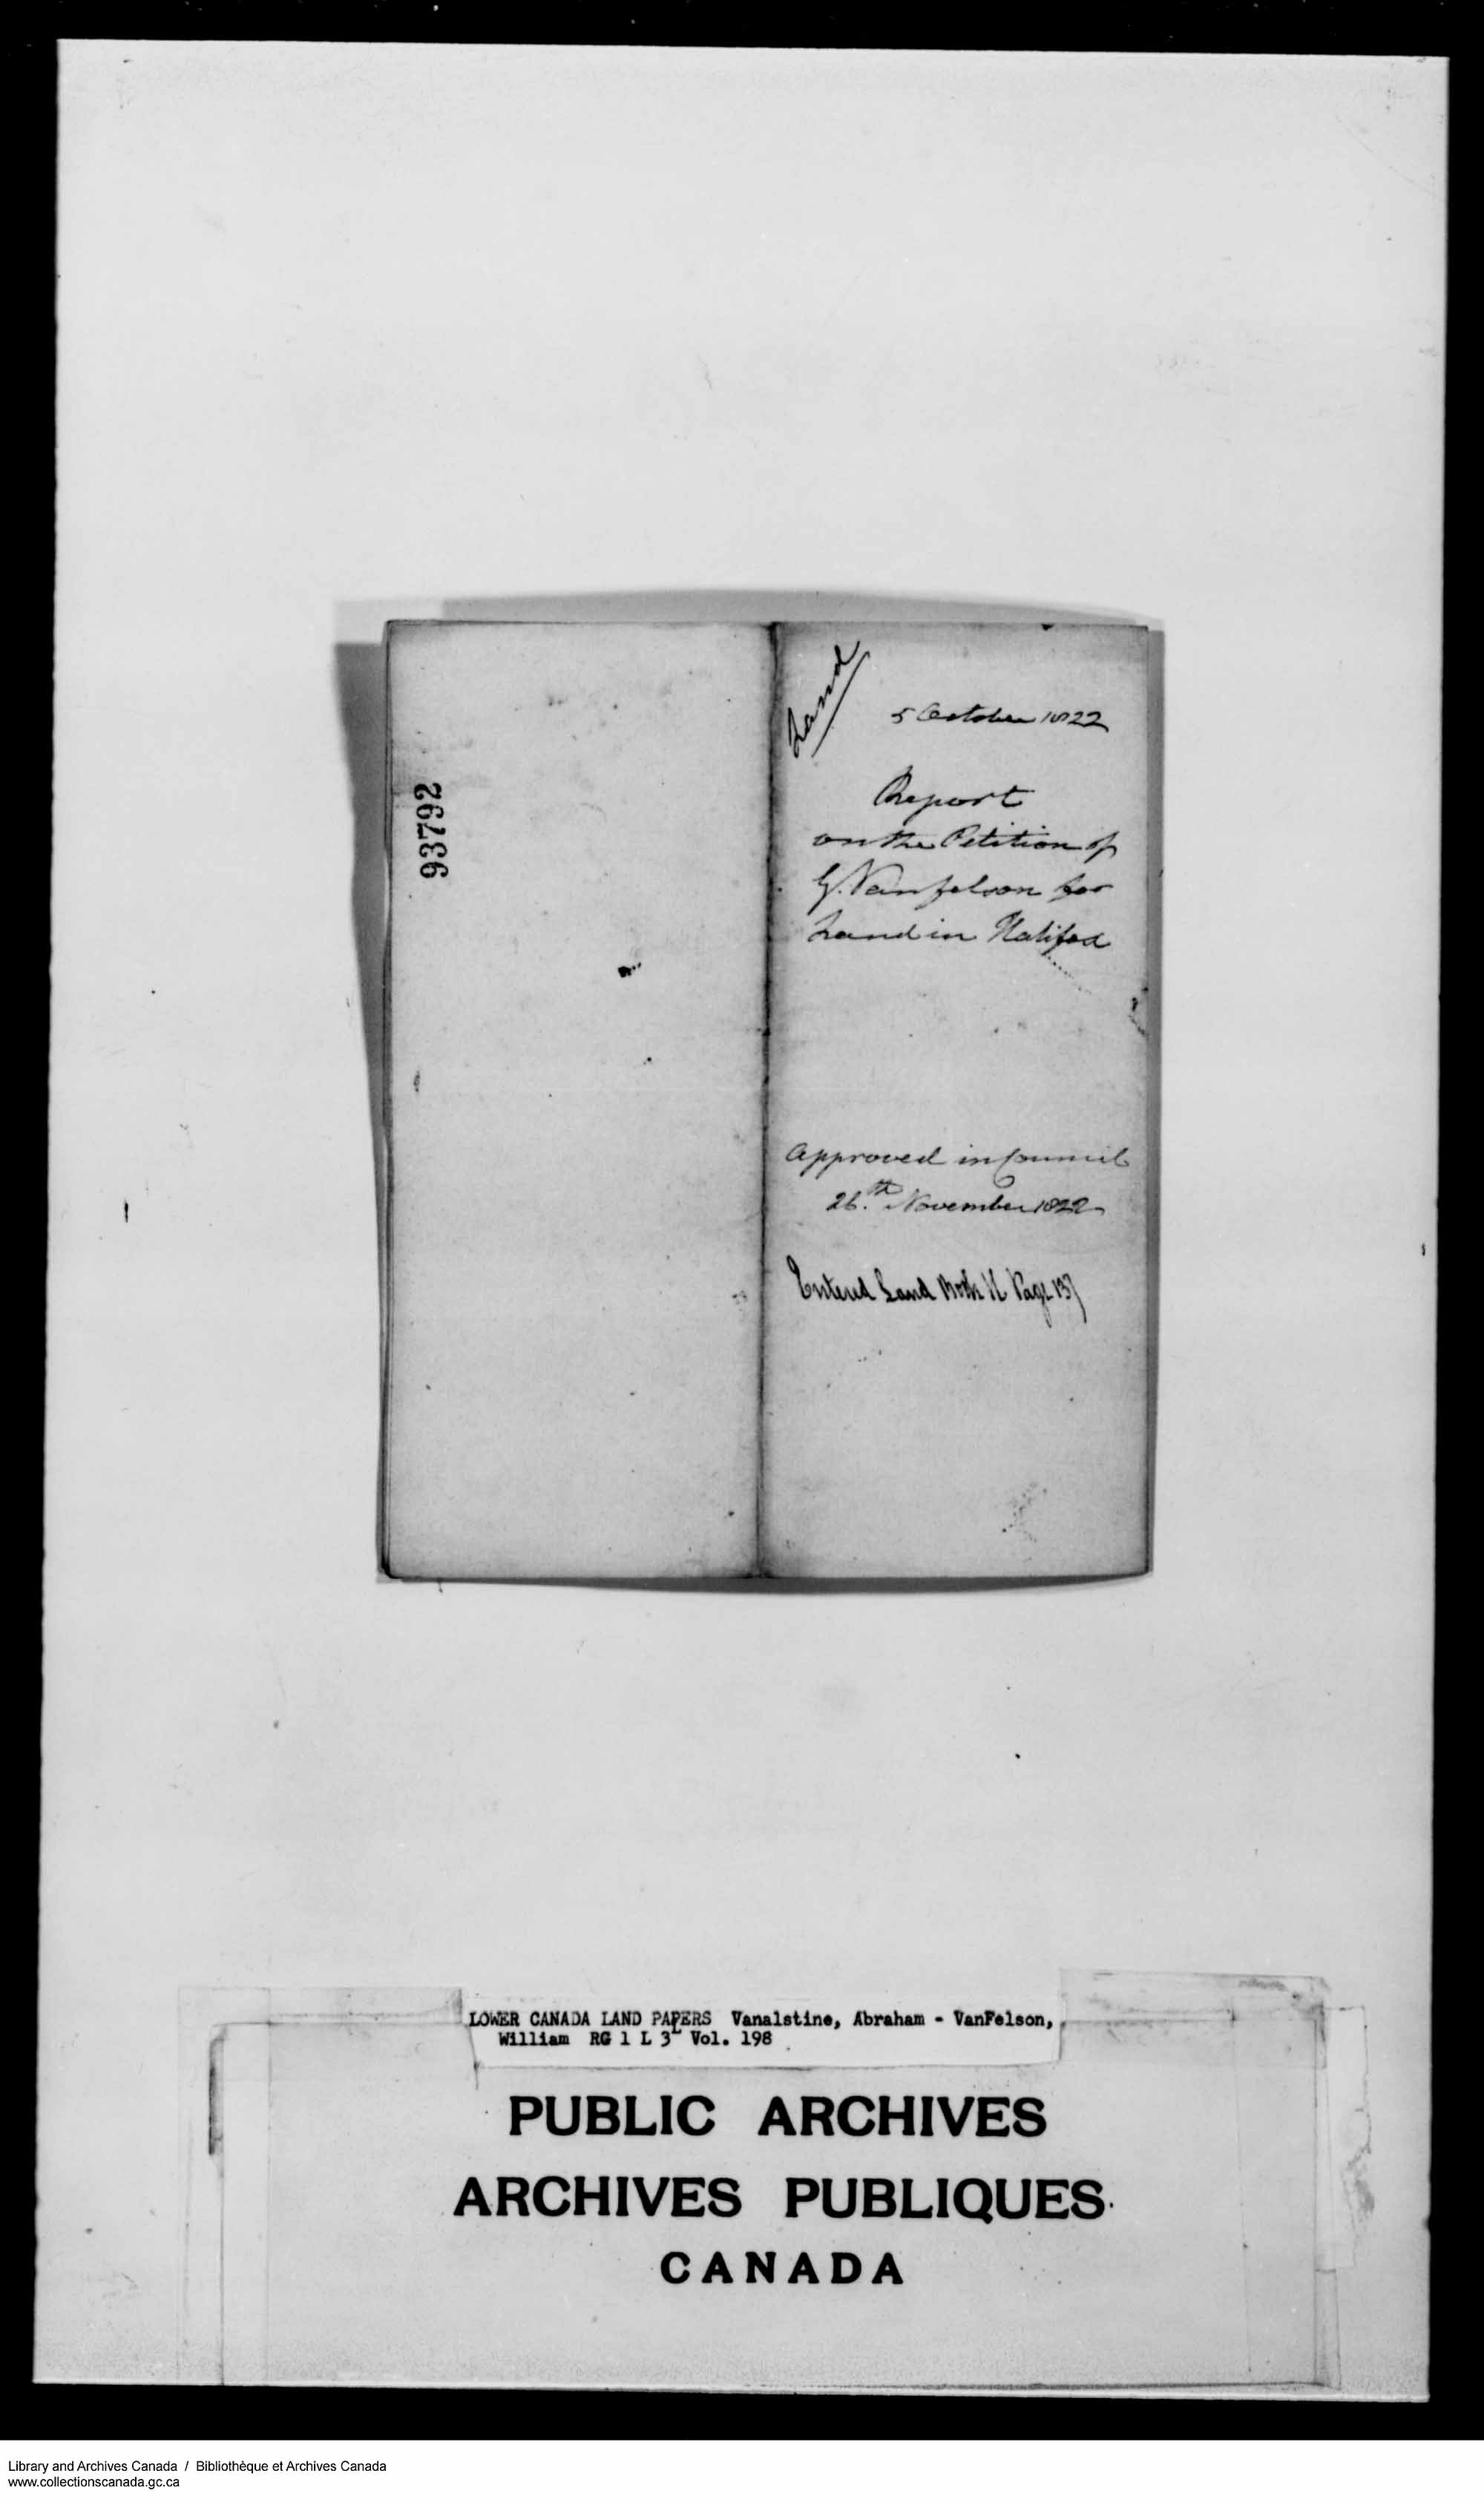 93792
Land
5 October 1822
Report
on the Petition of
G. Vanfelson for
Land in Halifax
Approved in Council
26.th November 1822
Entered Land Book Page 137
LOWER CANADA LAND PAPERS Vanalstine, Abraham - VanFelson,
William RG 1 L 3L Vol. 198
PUBLIC ARCHIVES
ARCHIVES PUBLIQUES
CANADA
Library and Archives Canada / Bibliothèque et Archives Canada
www.collectionscanada.gc.ca